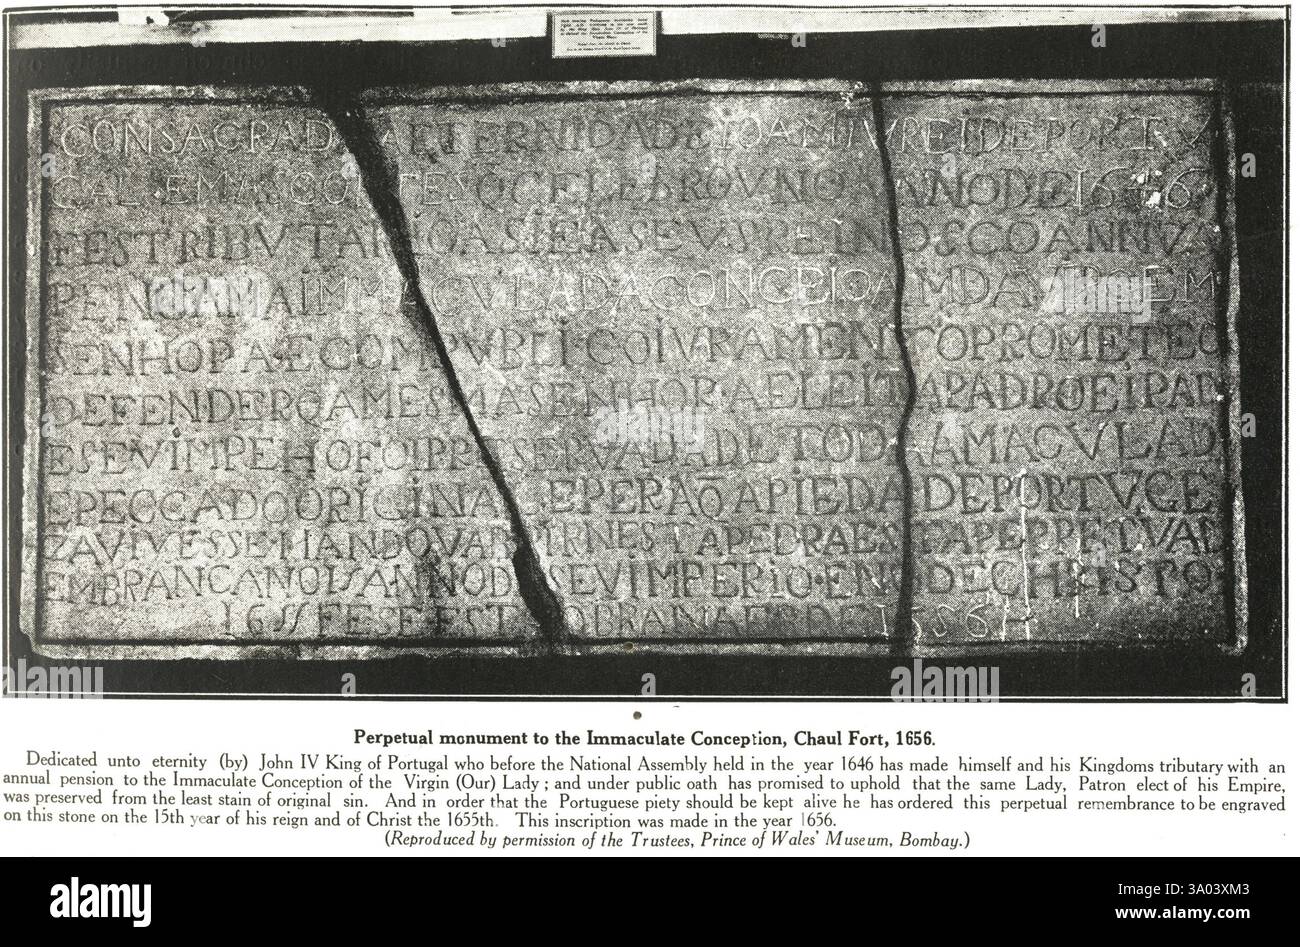 CONSAGRAD A ETERNIDADE IOAM IV REI DE PORTV
GAL E MAS CO TES Q CELEBROV NO ANNO DE 1646
FES TRIBVTARIO A SI E A SEVS REINOS CO ANNVA
PENCAM A IMMACVLADA CONCEICAM DA VIRGEM
SENHORA E COM PVBLICO IVRAMENTO PROMETEO
DEFENDER Q A MESMA SENHORA ELEITA PADROEIPAD
E SEV IMPEHO FOI PRESERVADA DE TODA A MACVLAD
E PECCADO ORIGINAL E PERA Q A PIEDADE PORTVGE
ZA VIVESSE MANDOV AB IR NESTA PEDRA ESTA PERPETVA
EMBRANCA NO IS ANNO D SEV IMPERIO E NO DE CHRISTO
1655 FES E EST OBRA NA ES DE 1656
Perpetual monument to the Immaculate Conception, Chaul Fort, 1656.
Dedicated unto eternity (by) John IV King of Portugal who before the National Assembly held in the year 1646 has made himself and his Kingdoms tributary with an
annual pension to the Immaculate Conception of the Virgin (Our) Lady ; and under public oath has promised to uphold that the same Lady, Patron elect of his Empire,
was preserved from the least stain of original sin. And in order that the Portuguese piety should be kept alive he has ordered this perpetual remembrance to be engraved
on this stone on the 15th year of his reign and of Christ the 1655th. This inscription was made in the year 1656.
(Reproduced by permission of the Trustees, Prince of Wales' Museum, Bombay.)
alamy
Image ID: 2A03XM3
www.alamy.com